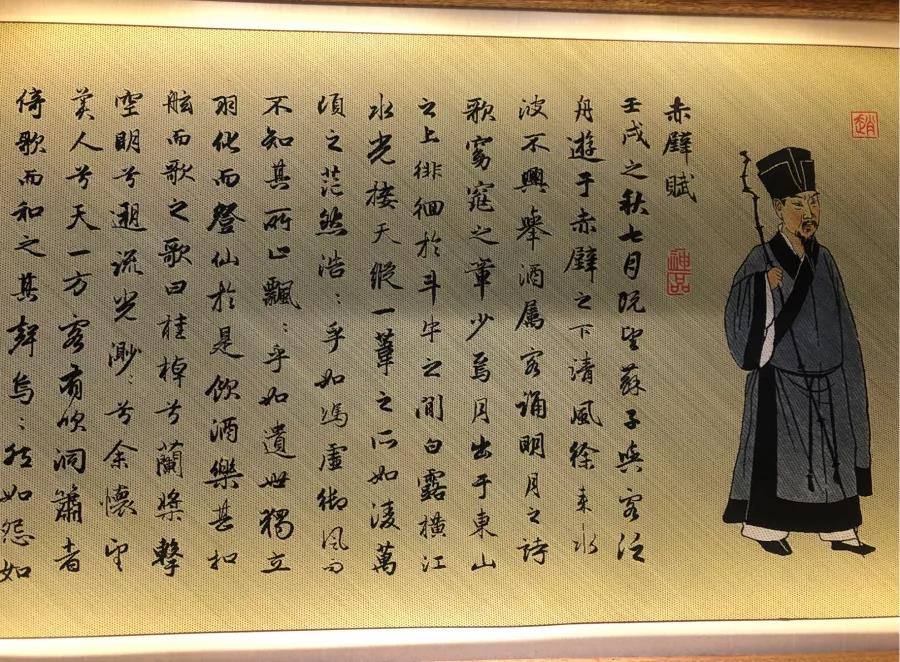 趙
赤壁賦
神品
壬戌之秋七月既望蘇子與客泛
舟遊于赤壁之下清風徐来水
波不興舉酒属客誦明月之詩
歌窈窕之章少焉月出于東山
之上徘徊於斗牛之間白露横江
水光接天縱一葦之所如淩萬
頃之茫然浩：乎如馮虚御風而
不知其所止飄：乎如遺世獨立
羽化而登仙於是飲酒樂甚扣
舷而歌之歌曰桂棹兮蘭槳擊
空明兮遡流光渺：兮余懷望
美人兮天一方客有吹洞簫者
倚歌而和之其聲烏：然如怨如